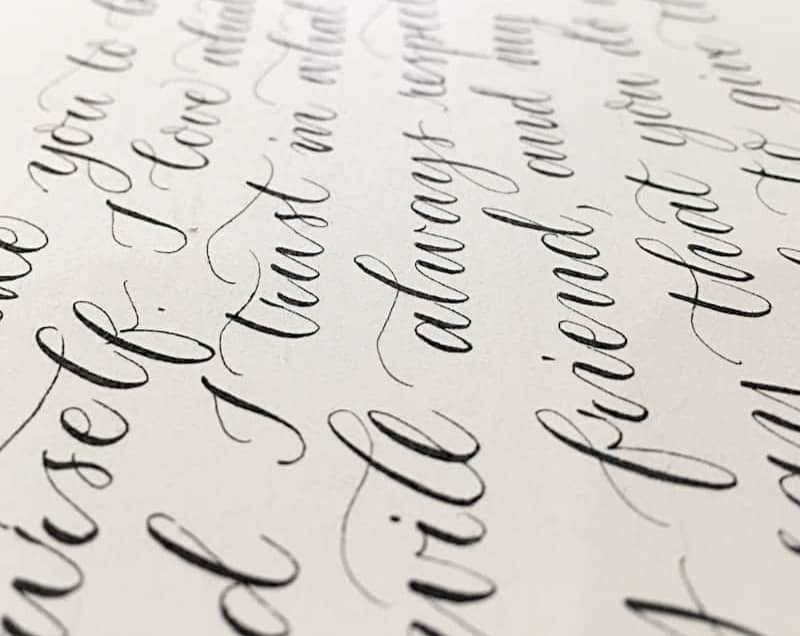 you to
urself. I love what
d I trust in what
will always respect
y friend, and my
that you do
to give